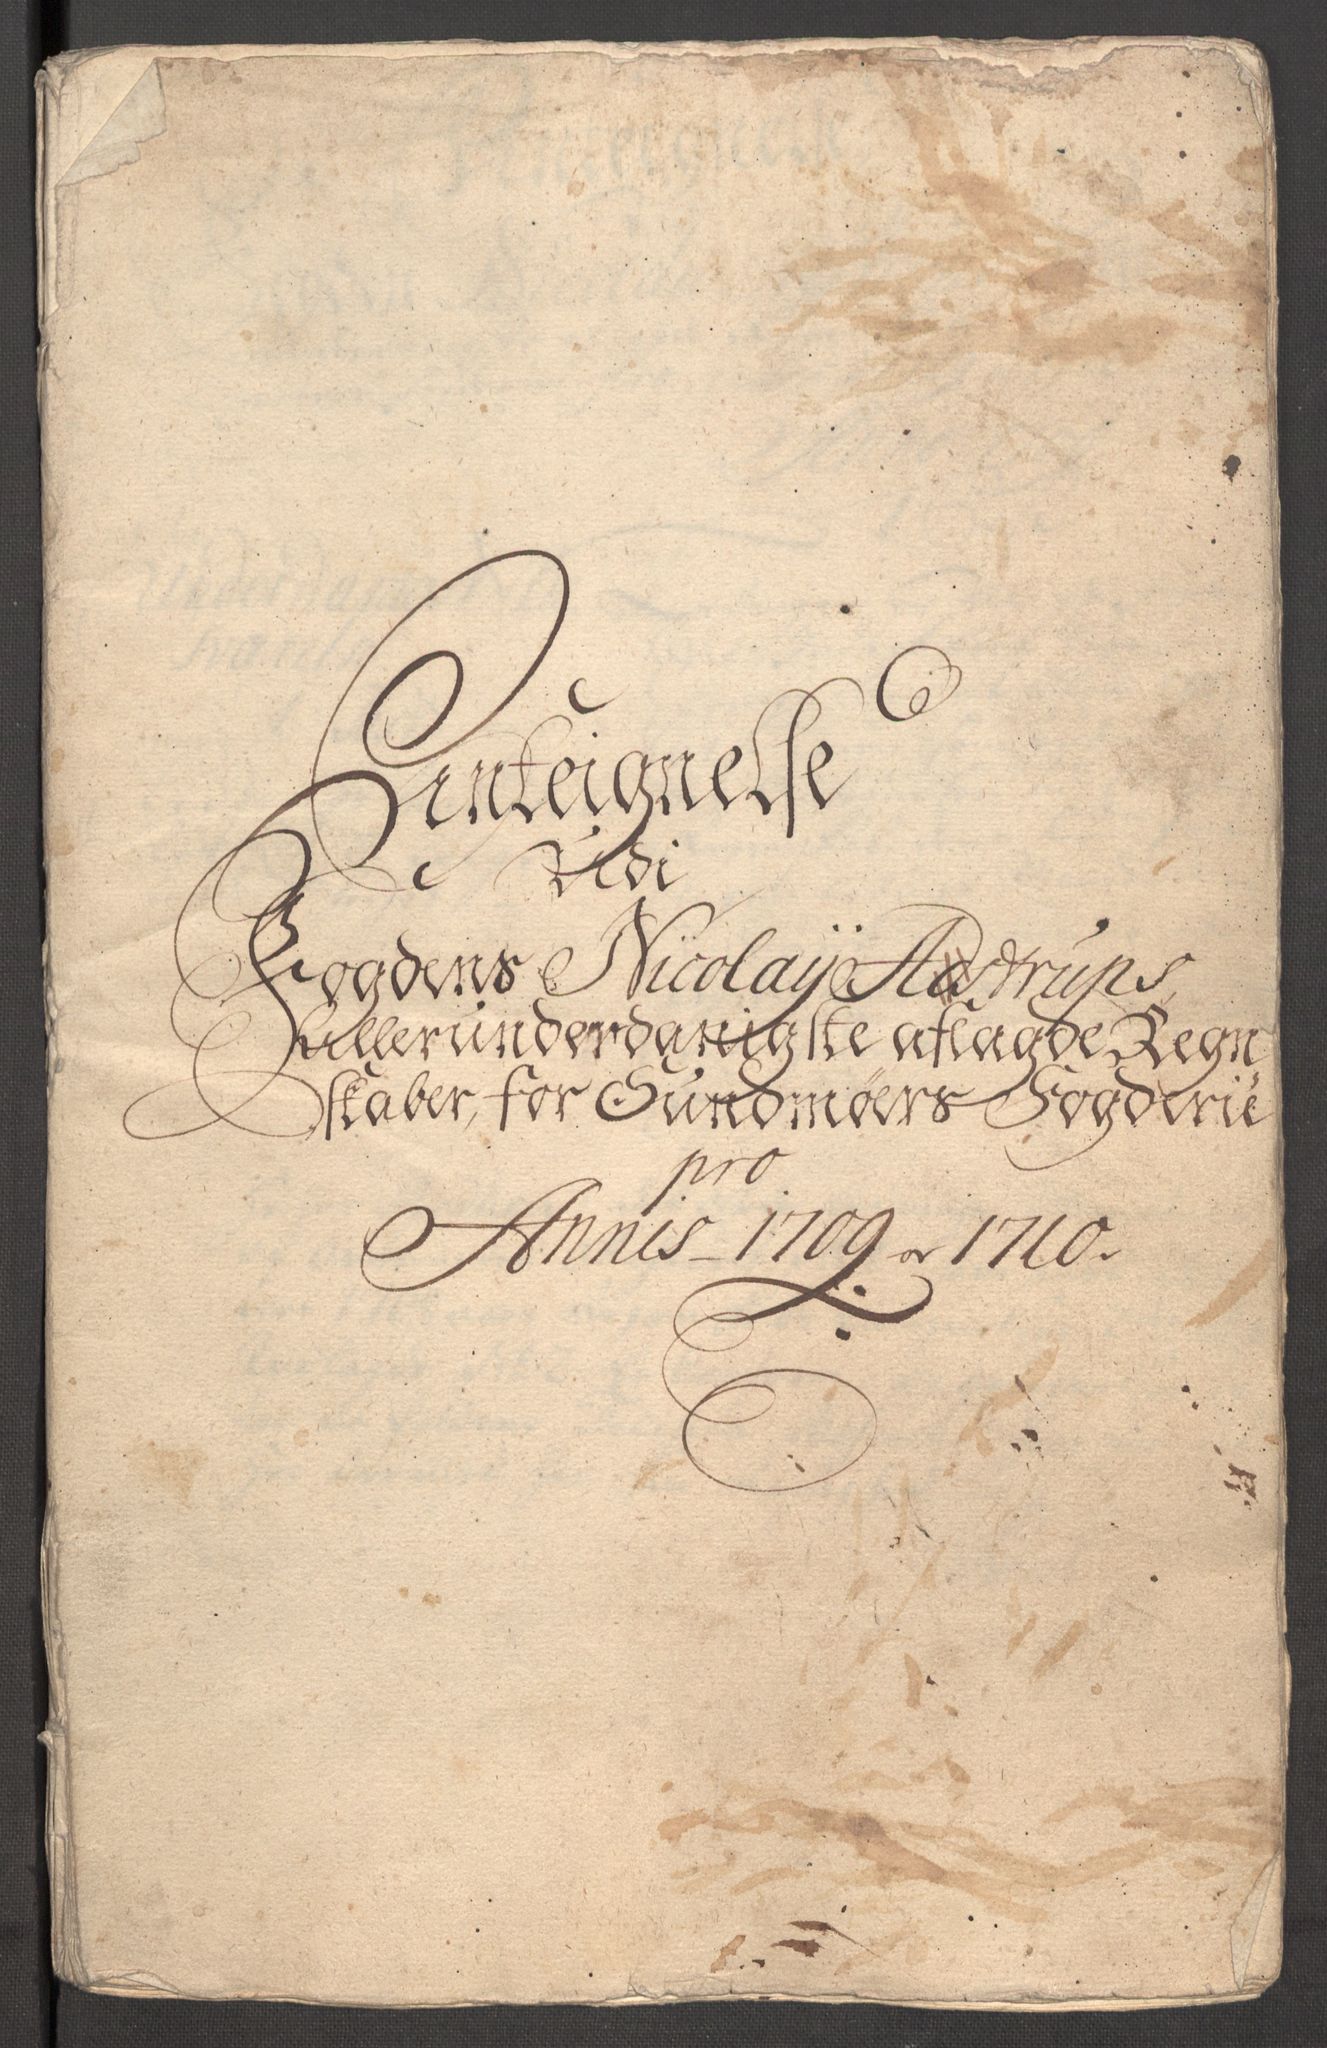 Anteignelse
Udi
Fogdens Nicolaÿ Aastrups
Allerunderdanigste aflagde Regn
skaber, for Sundmøers Fogderie
pro
Annis 1709 or 1710.